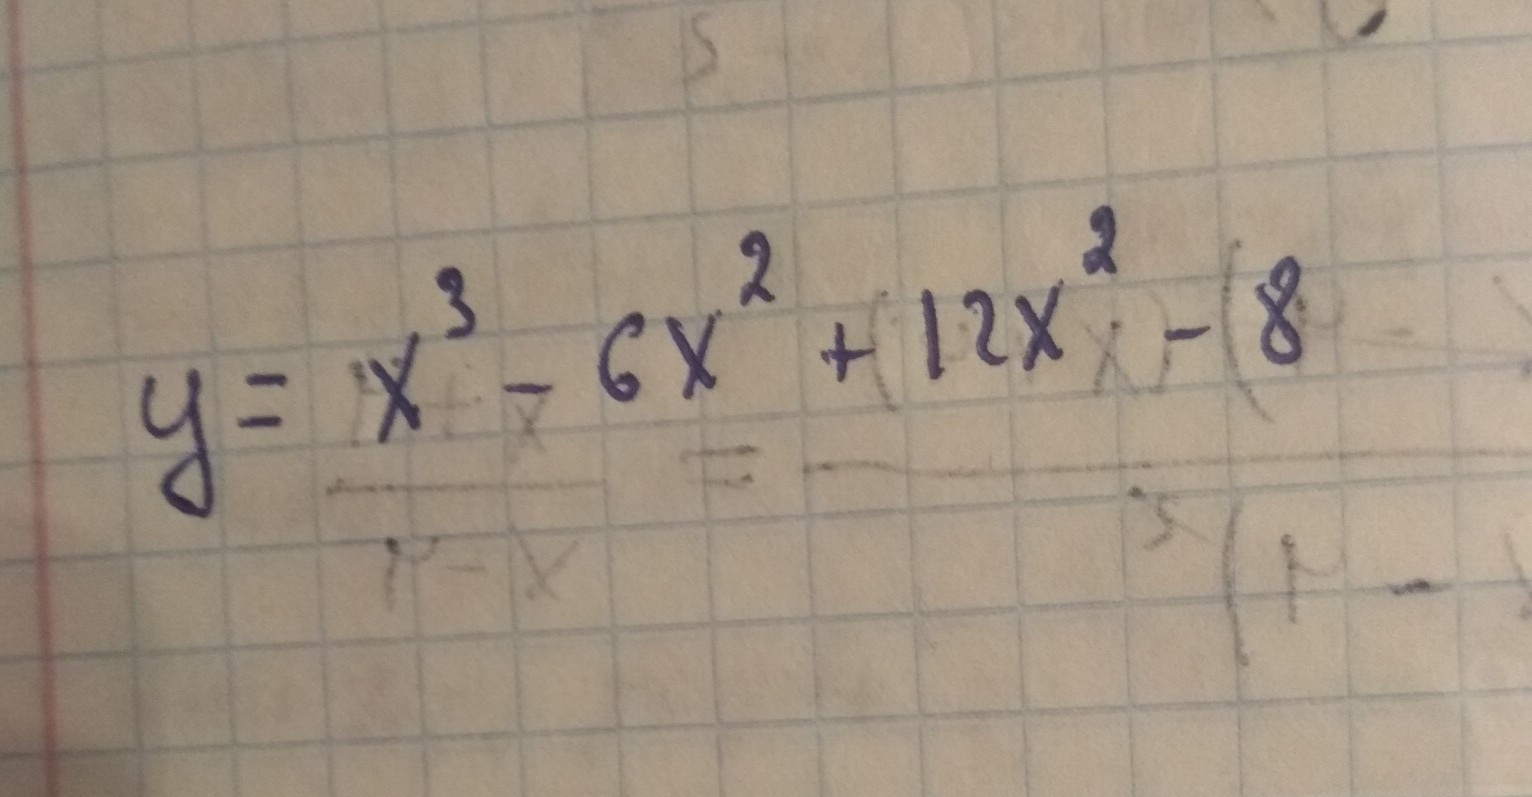 y = x³ - 6x² + 12x² - 8